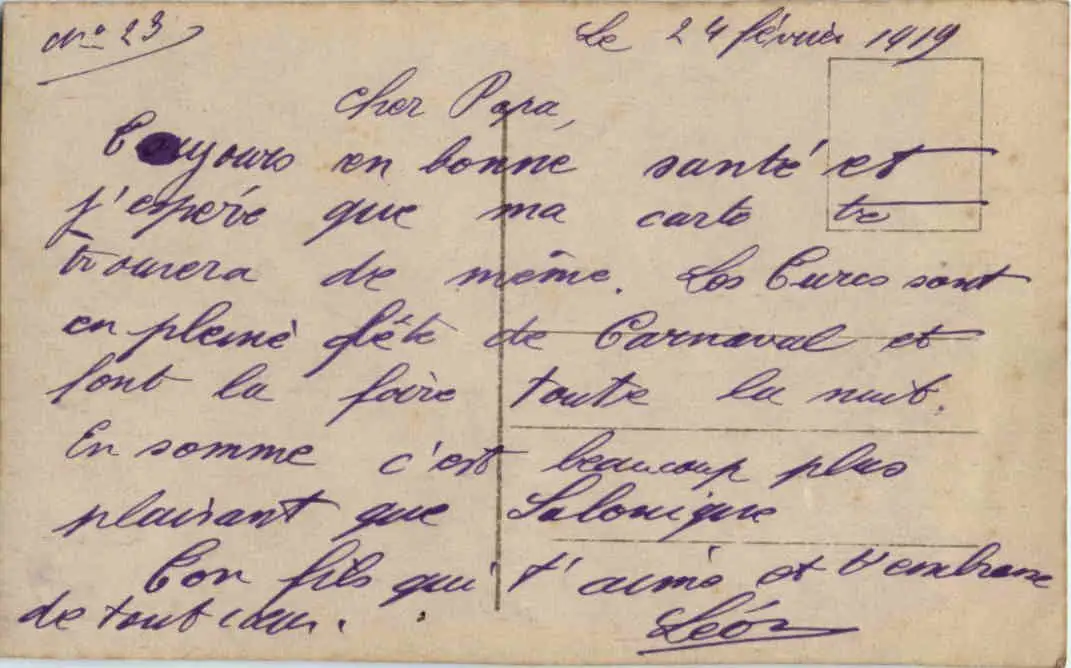 No 23
Le 24 février 1919
Cher Papa,
Toujours en bonne santé et
j'espère que ma carte te
trouvera de même. Les Turcs sont
en pleine fête de Carnaval et
font la foire toute la nuit.
En somme c'est beaucoup plus
plaisant que Salonique
Ton fils qui t'aime et t'embrasse
de tout cœur.
Léon